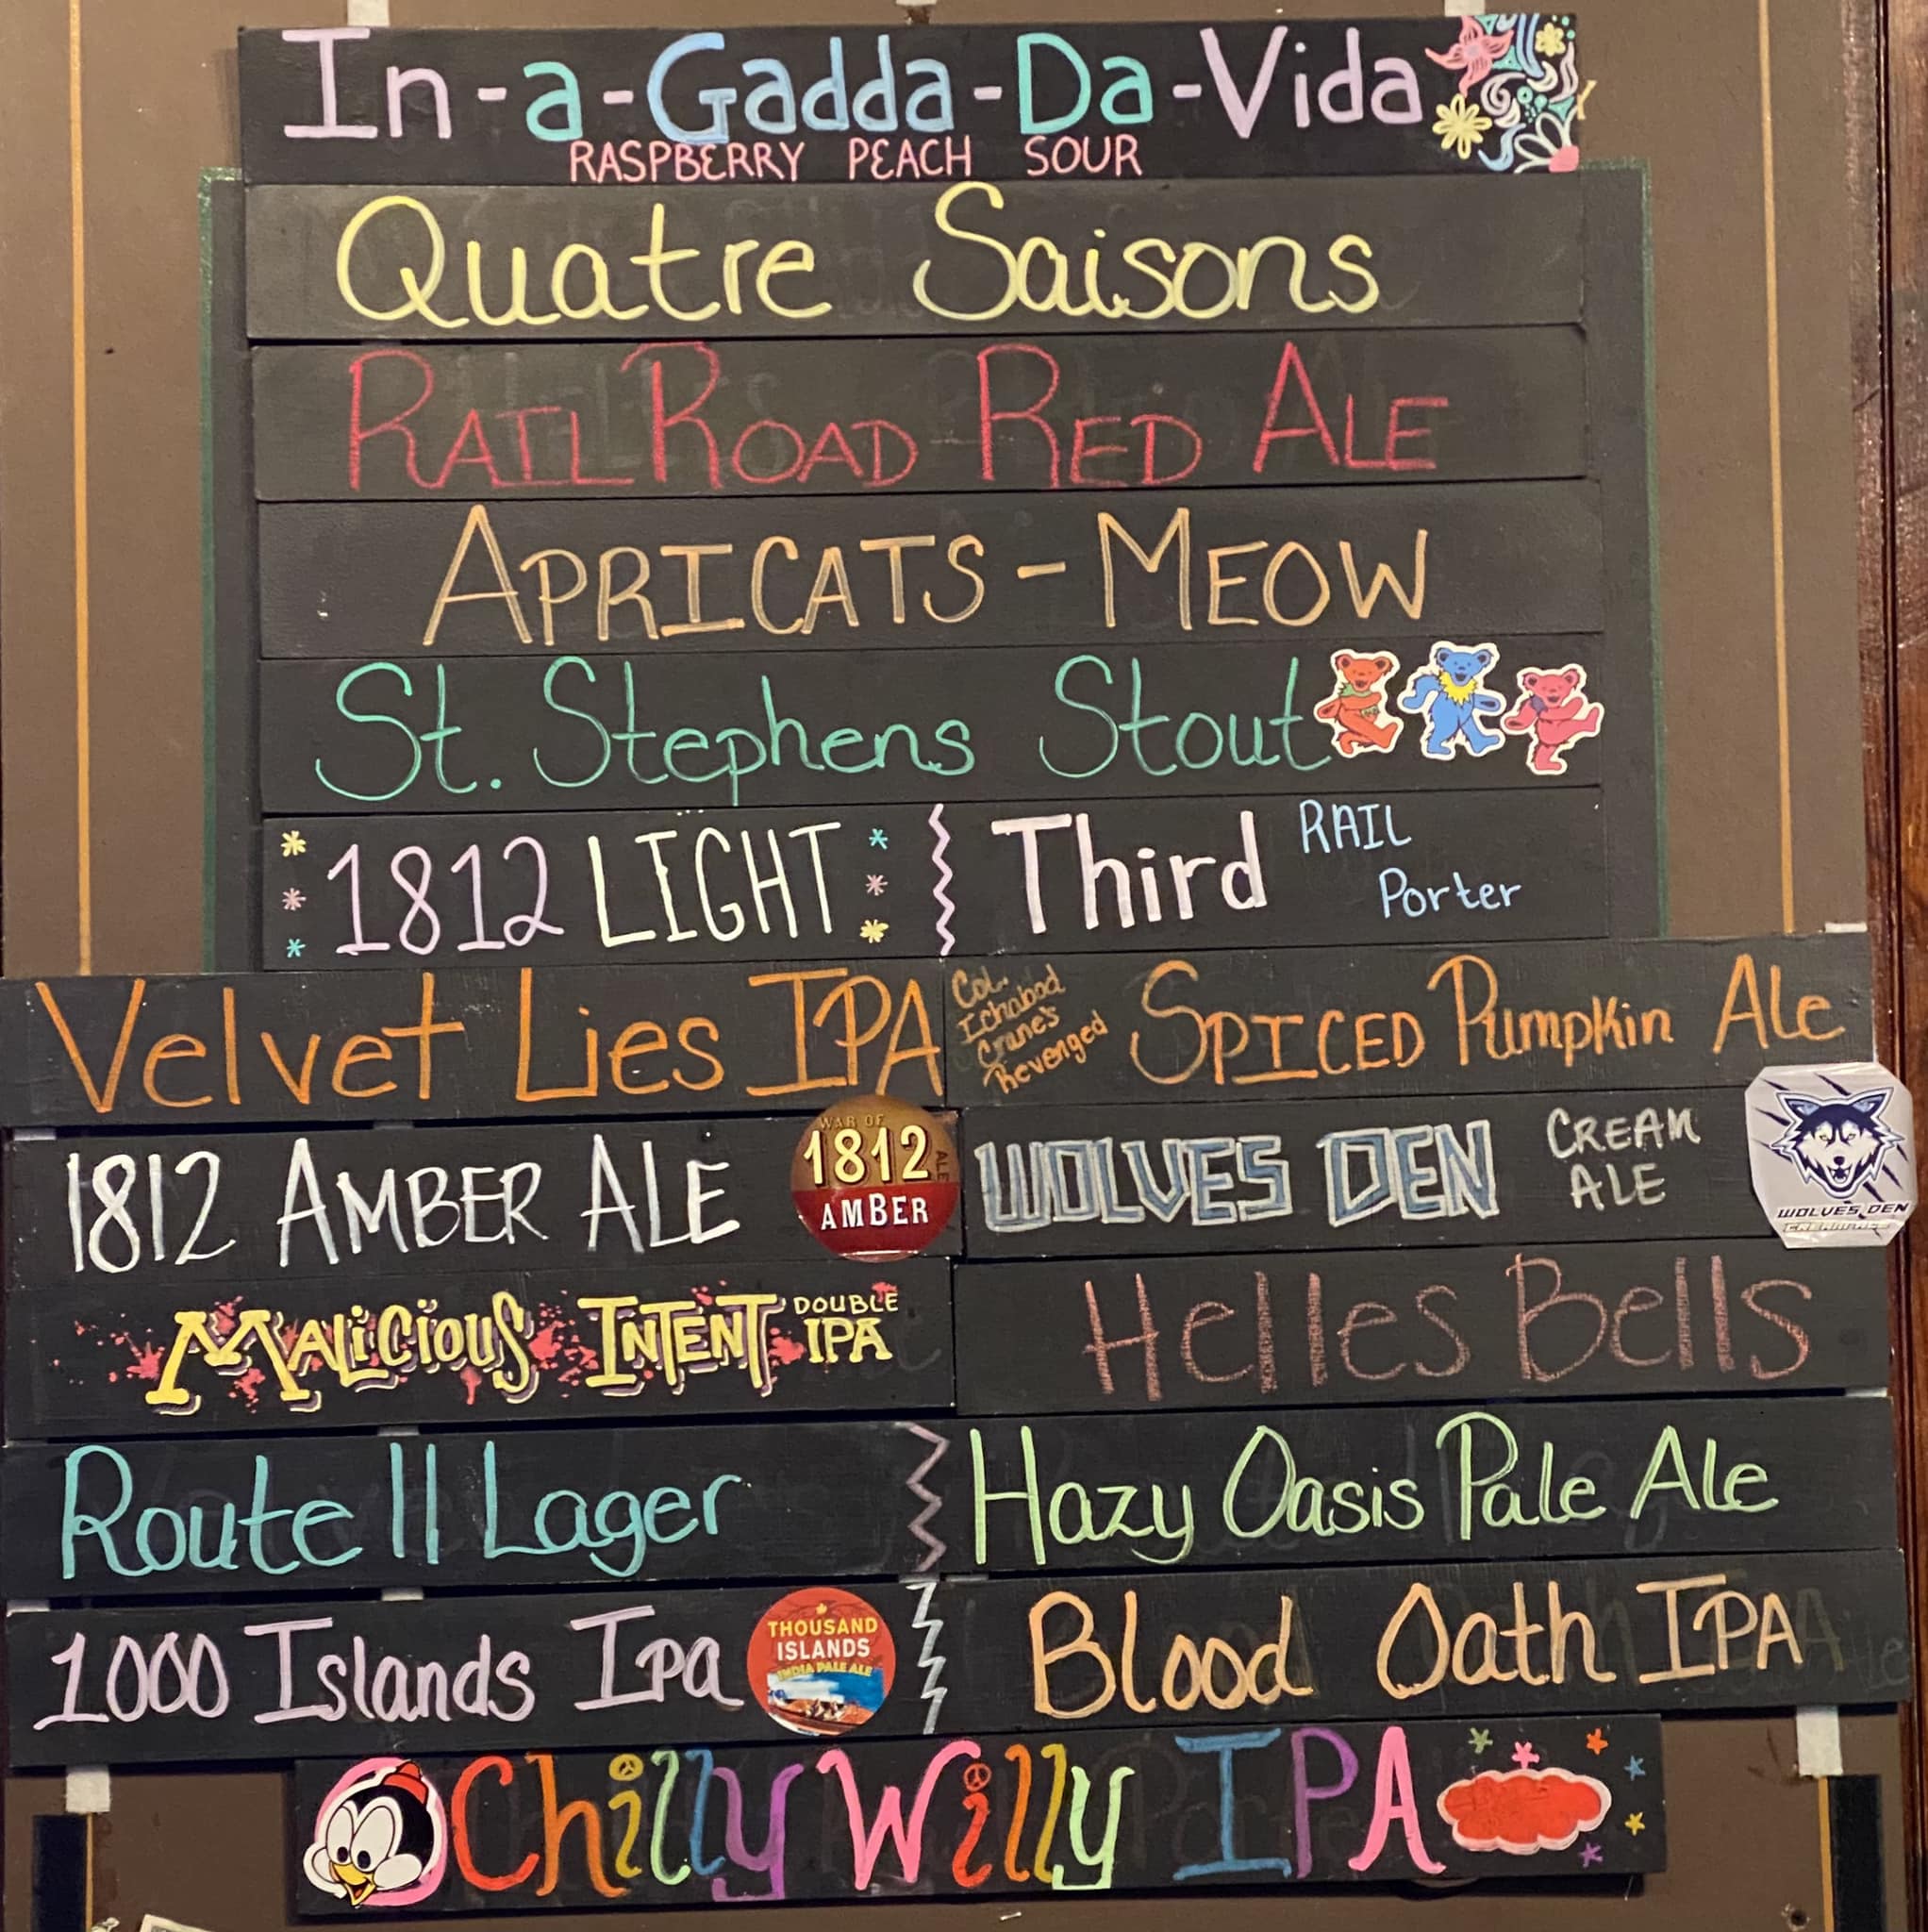 In-a-Gadda-Da-Vida
RASPBERRY PEACH SOUR
Quatre Saisons
RAILROAD RED ALE
APRICATS - MEOW
St. Stephens Stout
1812 LIGHT
Third RAIL
Porter
Velvet Lies IPA
Col.
Ichabod
Crane's
Revenged
SPICED Pumpkin Ale
1812 AMBER ALE
WAR OF
1812
ALE
AMBER
WOLVES DEN
CREAM
ALE
WOLVES DEN
MALiCiouS INTENT
DOUBLE
IPA
Helles Bells
Route 11 Lager
Hazy Oasis Pale Ale
1000 Islands Ipa
THOUSAND
ISLANDS
INDIA PALE ALE
Blood Oath IPA
Chilly Willy IPA